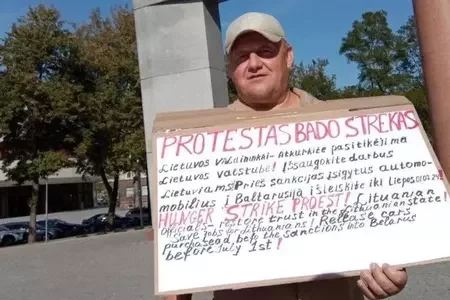 PROTESTAS BADO STREKAS
Lietuvos Valdininkai - Atkurkite pasitikėjimą
Lietuvos valstube! Išsaugokite darbus
Lietuviams! Pries sankcijas įsigytus automo-
mobilius į Baltarusiją išleiskite iki Liepos 01.024!
HUNGER STRIKE PROEST! Lithuanian
officials - restore trust in the lithuanian state!
Save jobs for lithuanians! Release cars
purchased befo the sanctions into Belarus
before july 1st!